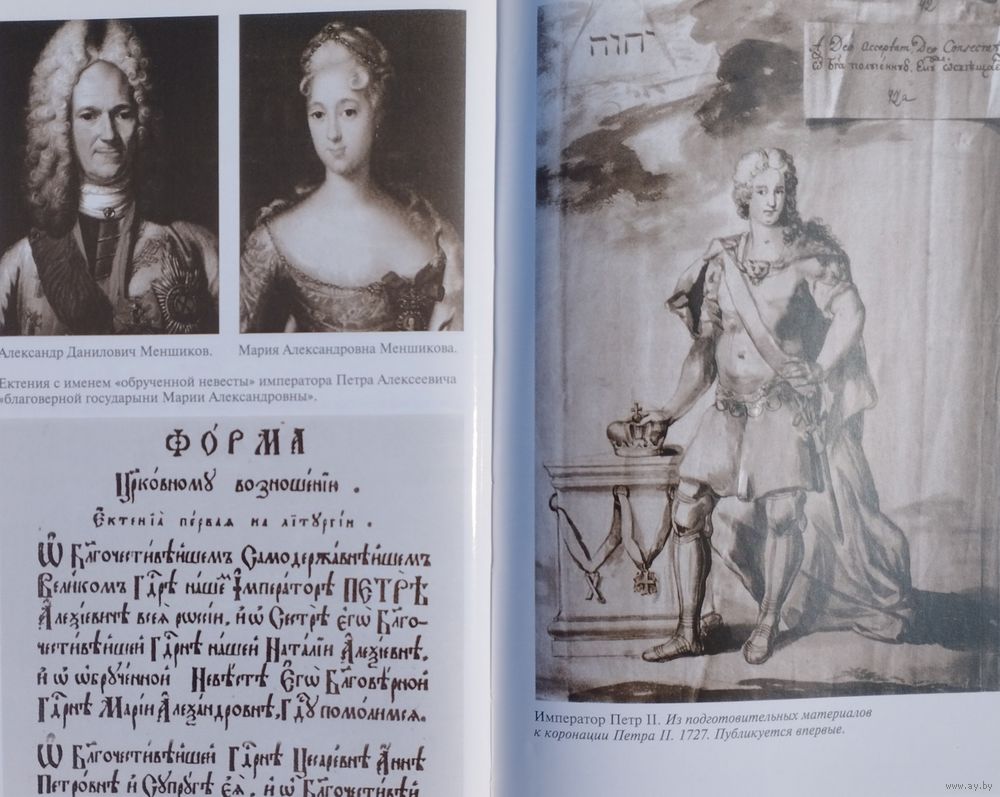 Александр Данилович Меншиков.
Мария Александровна Меншикова.
Ектения с именем «обрученной невесты» императора Петра Алексеевича
«благоверной государыни Марии Александровны».
ФО́РМА
Цр҃ковному возноше́нїю .
Е҆ктенїа̀ пе́рваѧ на лїтꙋргі́и .
Ѡ҆ Бл҃гочести́вѣйшемъ Самодержа́внѣйшемъ
Вели́комъ Гдⷭ҇рѣ на́шемъ І҆мпера́торѣ ПЕТРѢ̀
А҆леѯі́евичѣ всеѧ̀ рѡссі́и, и҆ ѡ҆ Сестрѣ̀ є҆гѡ̀ Бл҃го-
чести́вѣйшей Гдⷭ҇рнѣ на́шей Ната́лїи А҆леѯі́евнѣ,
и҆ ѡ҆ ѡ҆брꙋ́ченной Невѣ́стѣ Є҆гѡ̀ Бл҃говѣ́рной
Гдⷭ҇рнѣ Марі́и А҆леѯа́ндровнѣ, Гдⷭ҇ꙋ помо́лимсѧ.
Ѡ҆ Бл҃гочести́вѣйшей Гдⷭ҇рнѣ Цеса́ревнѣ А҆́ннѣ
Петро́внѣ и҆ Сꙋпрꙋ́гѣ Є҆ѧ̀, и҆ ѡ҆ Бл҃гочести́вѣйшей
יהוה
42
A Deo acceptam, Deo Consecrat
42a
Император Петр II. Из подготовительных материалов
к коронации Петра II. 1727. Публикуется впервые.
www.ay.by